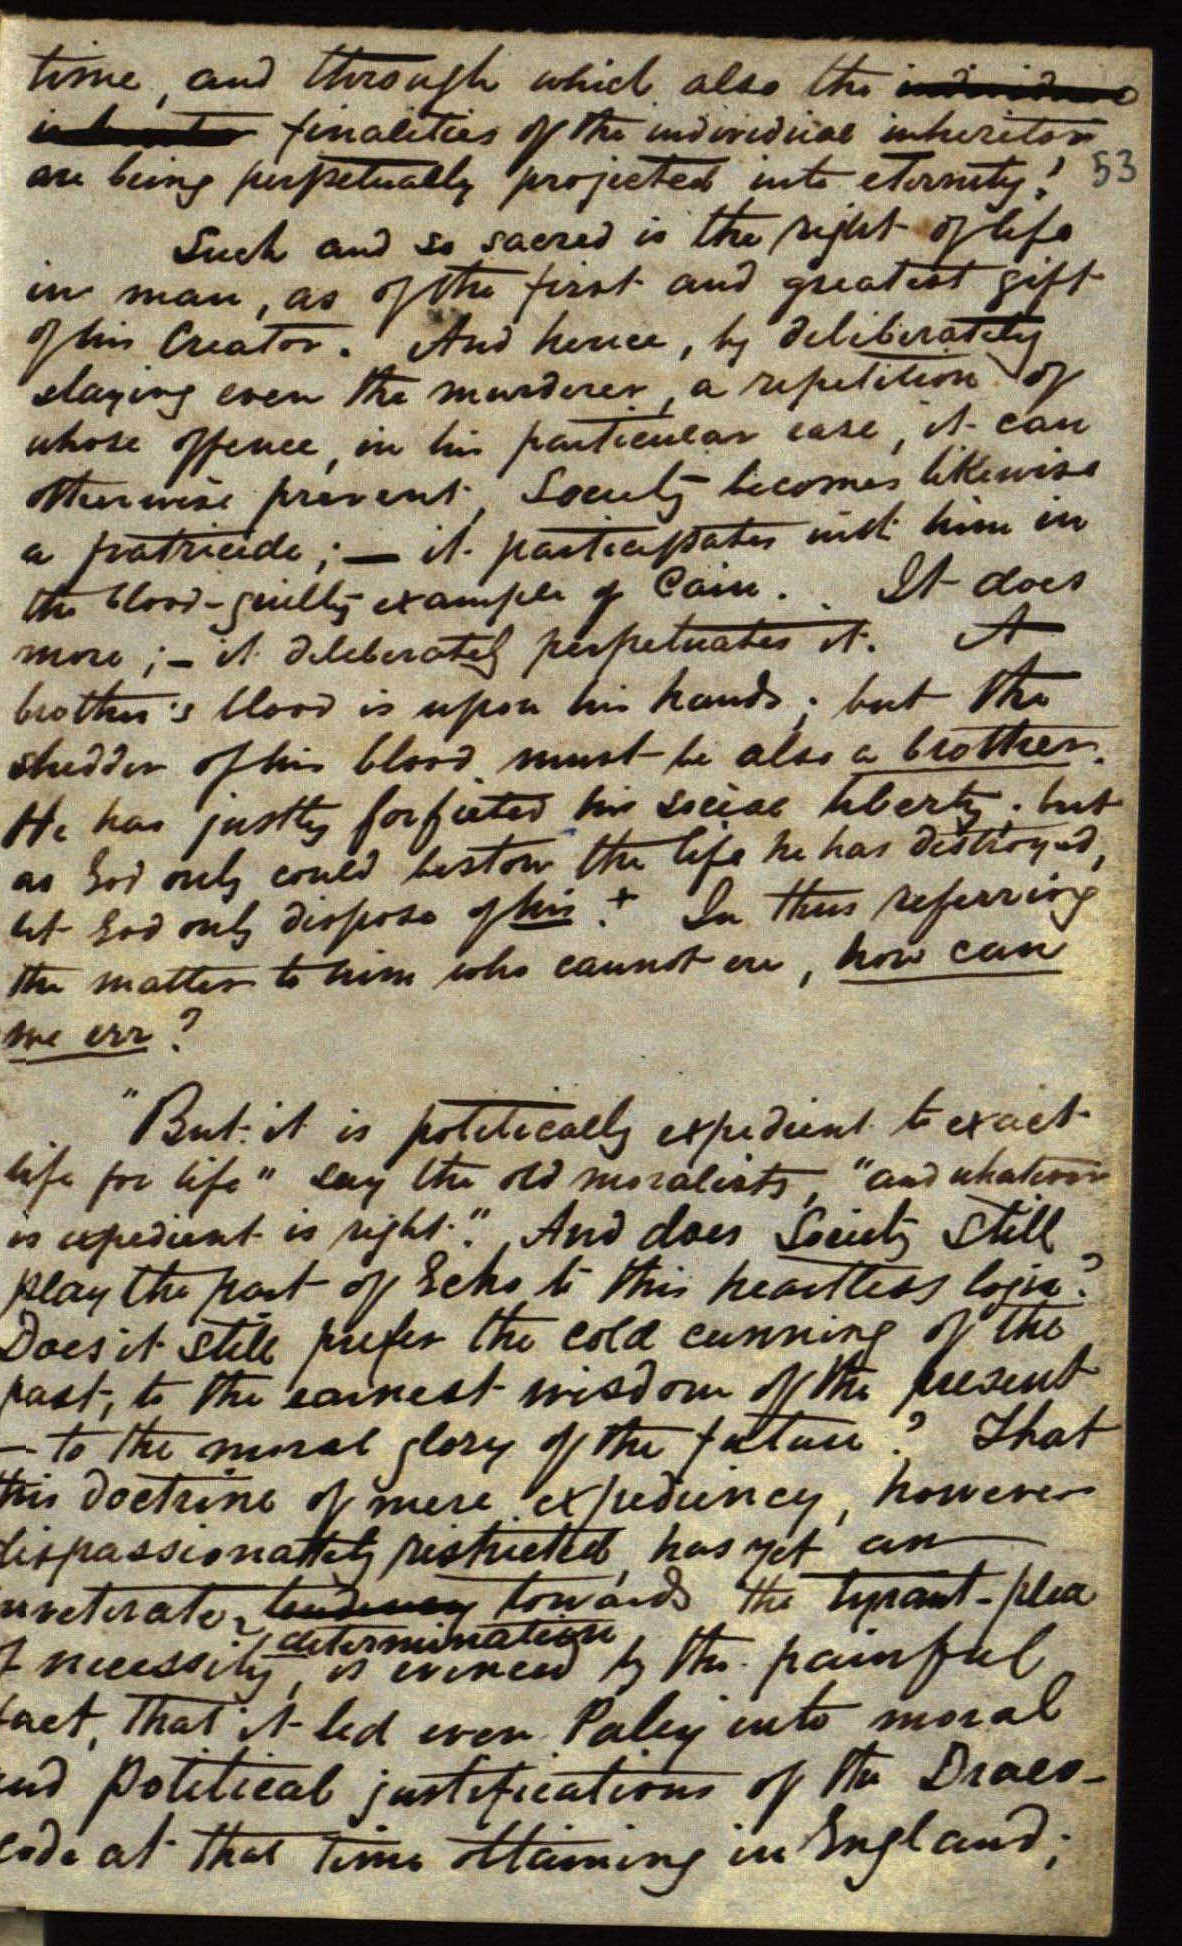 time, and through which also the individual
inheritor finalities of the individual inheritor
are being perpetually projected into eternity!
53
Such and so sacred is the right of life
in man, as of the first and greatest gift
of his Creator. And hence, by deliberately
slaying even the murderer, a repetition of
whose offence, in his particular case, it can
otherwise prevent, Society becomes likewise
a fratricide; — it participates with him in
the blood-guilty example of Cain. It does
more; – it deliberately perpetuates it. A
brother's blood is upon his hands; but the
shedder of his blood must be also a brother.
He has justly forfieted his social liberty; but
as God only could bestow the life he has destroyed,
let God only dispose of his.+ In thus referring
the matter to him who cannot err, how can
we err?
"But it is politically expedient to exact
life for life" say the old moralists, "and whatever
is expedient is right." And does Society still
play the part of Echo to this heartless logic?
Does it still prefer the cold cunning of the
past, to the earnest wisdom of the present
— to the moral glory of the future? That
this doctrine of mere expediency, however
dispassionately restricted, has yet an
inveterate tendency towards the tyrant-plea
determination
of necessity, is evinced by the painful
fact, that it led even Paley into moral
and political justifications of the Draco-
code at that time obtaining in England;